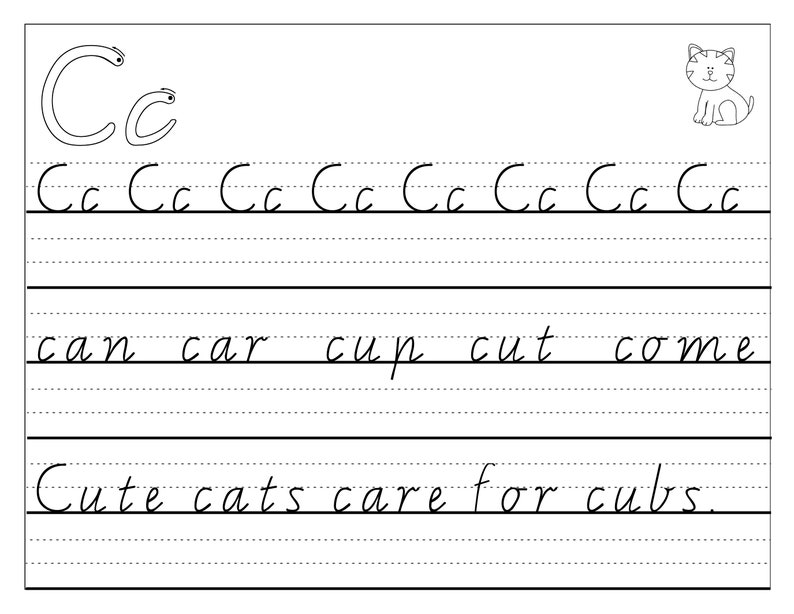 Cc
Cc Cc Cc Cc Cc Cc Cc Cc
can car cup cut come
Cute cats care for cubs.